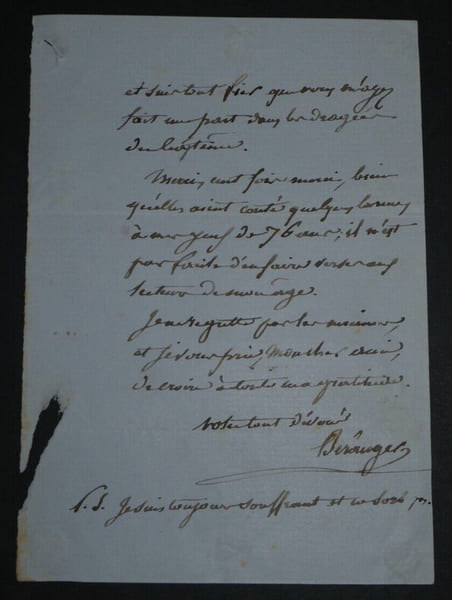 et suis tout fier que vous m'ayez
fait une part dans les dragées
du baptême.
Merci, cent fois merci, bien
qu'elles aient coûté quelques larmes
à mes yeux de 76 ans; il n'est
pas facile d'en faire verser aux
lecteurs de mon âge.
Je ne regrette pas les miennes,
et je vous prie, mon cher ami,
de croire à toute ma gratitude.
Votre tout dévoué
Béranger
P. S. Je suis toujours souffrant et ne sors pas.